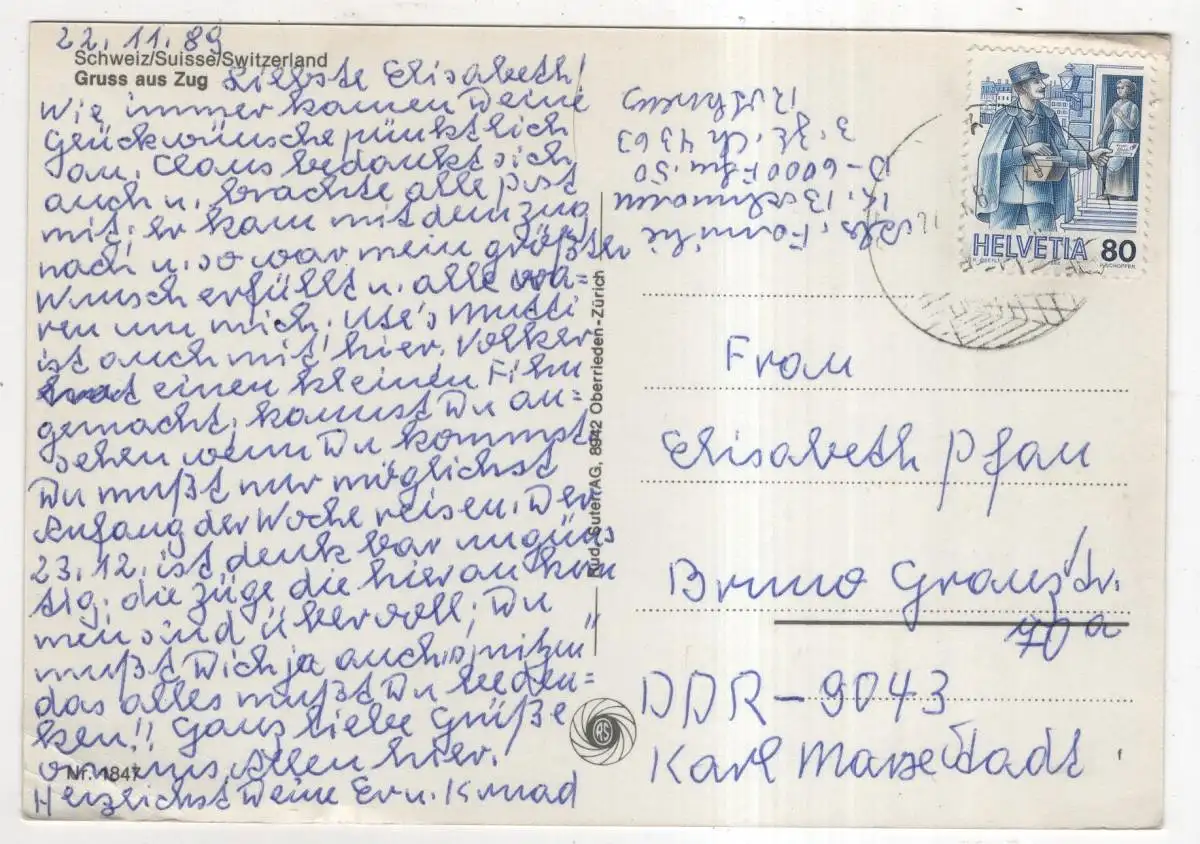 22.11.89
Schweiz/Suisse/Switzerland
Gruss aus Zug
Liebste Elisabeth!
Wie immer kamen Deine
Glückwünsche pünktlich
an. Claus bedankt sich
auch u. brachte alle Post
mit; er kam mit dem Zug
nach! u. so war mein größter
Wunsch erfüllt u. alle wa=
ren um mich. Ute's Mutti
ist auch mit hier. Volker
hat einen kleinen Film
gemacht; kannst Du an=
sehen wenn Du kommst.
Du mußt nur möglichst
Anfang der Woche reisen. Der
23.12. ist denkbar ungüns
tig; die Züge die hier ankom
men sind übervoll; Du
mußt Dich ja auch
das alles mußt Du beden=
ken!! Ganz liebe Grüße
von uns Allen hier.
Nr. 1847
Herzlichst Deine u. Konrad
Rud. Suter AG, 8942 Oberrieden-Zürich
RS
Abs. Familie
K.
D-6000 Ffm. 50
3. Zt. CH 4363
HELVETIA 80
Frau
Elisabeth Pfau
Bruno Granz Str.
70 a
DDR-9043
Karl Marx Stadt